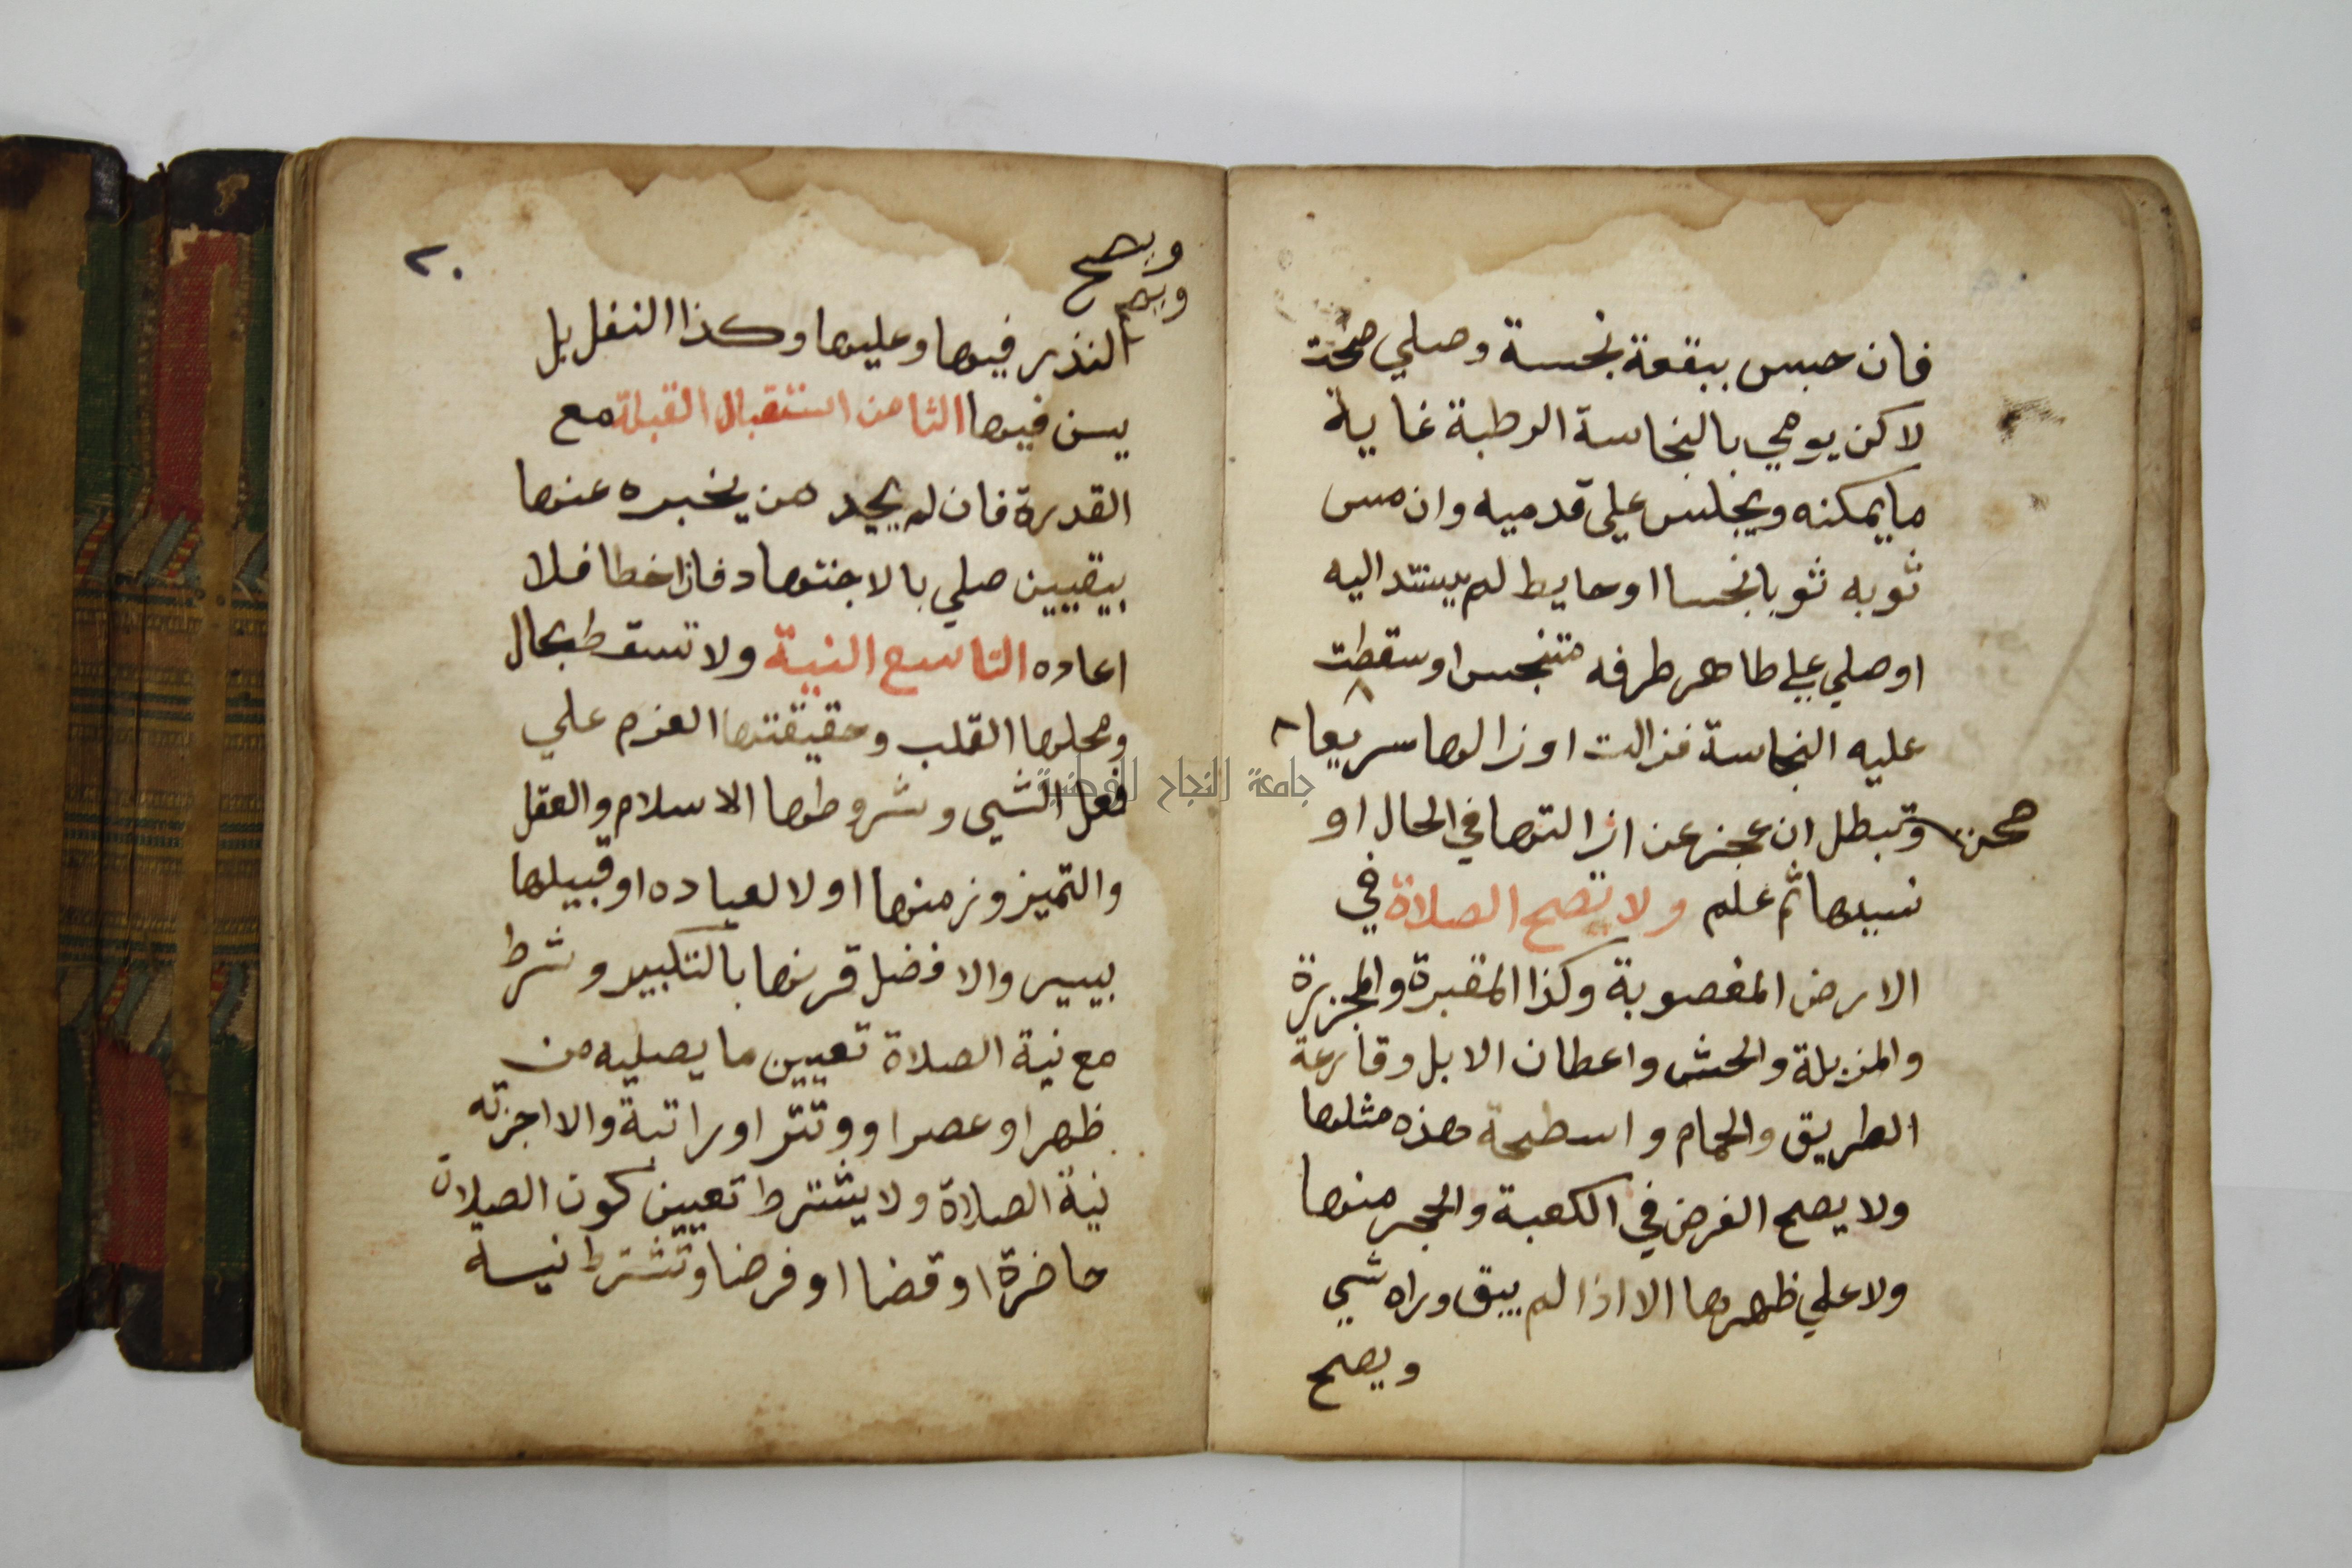 فان حبس ببقعة نجسة وصلي صحت
لاكن يومي بالنجاسة الرطبة غاية
ما يمكنه ويجلس علي قدميه وان مس
ثوبه ثوبا نجسا او حايط لم يستند اليه
او صلي علي طاهر طرفه متنجس او سقطت
عليه النجاسة فزالت او زالها سريعا
صحت
وتبطل ان عجز عن ازالتها في الحال او
نسيها ثم علم ولا تصح الصلاة في
الارض المغصوبة وكذا المقبرة والمجزرة
والمزبلة والحش واعطان الابل وقارعة
الطريق والحمام واسطحة هذه مثلها
ولا يصح الفرض في الكعبة والحجر منها
ولا علي ظهرها الا اذا لم يبق وراه شي
ويصح
٢٠
ويصح
ويصح
النذر فيها وعليها وكذا النفل بل
يسن فيها الثامن استقبال القبلة مع
القدرة فان لم يجد من يخبره عنها
بيقيين صلي بالاجتهاد فان اخطا فلا
اعاده التاسع النية ولا تسقط بحال
ومحلها القلب وحقيقتها العزم علي
فعل الشي وشروطها الاسلام والعقل
والتميز وزمنها اولا لعباده او قبيلها
بيسير والافضل قرنها بالتكبير وشرط
مع نية الصلاة تعيين ما يصليه من
ظهر او عصر او وتتر او راتبة والا اجزته
نية الصلاة ولا يشترط تعيين كون الصلاة
حاضرة او قضا او فرضا وتشترط نية
جامعة النجاح الوطنية